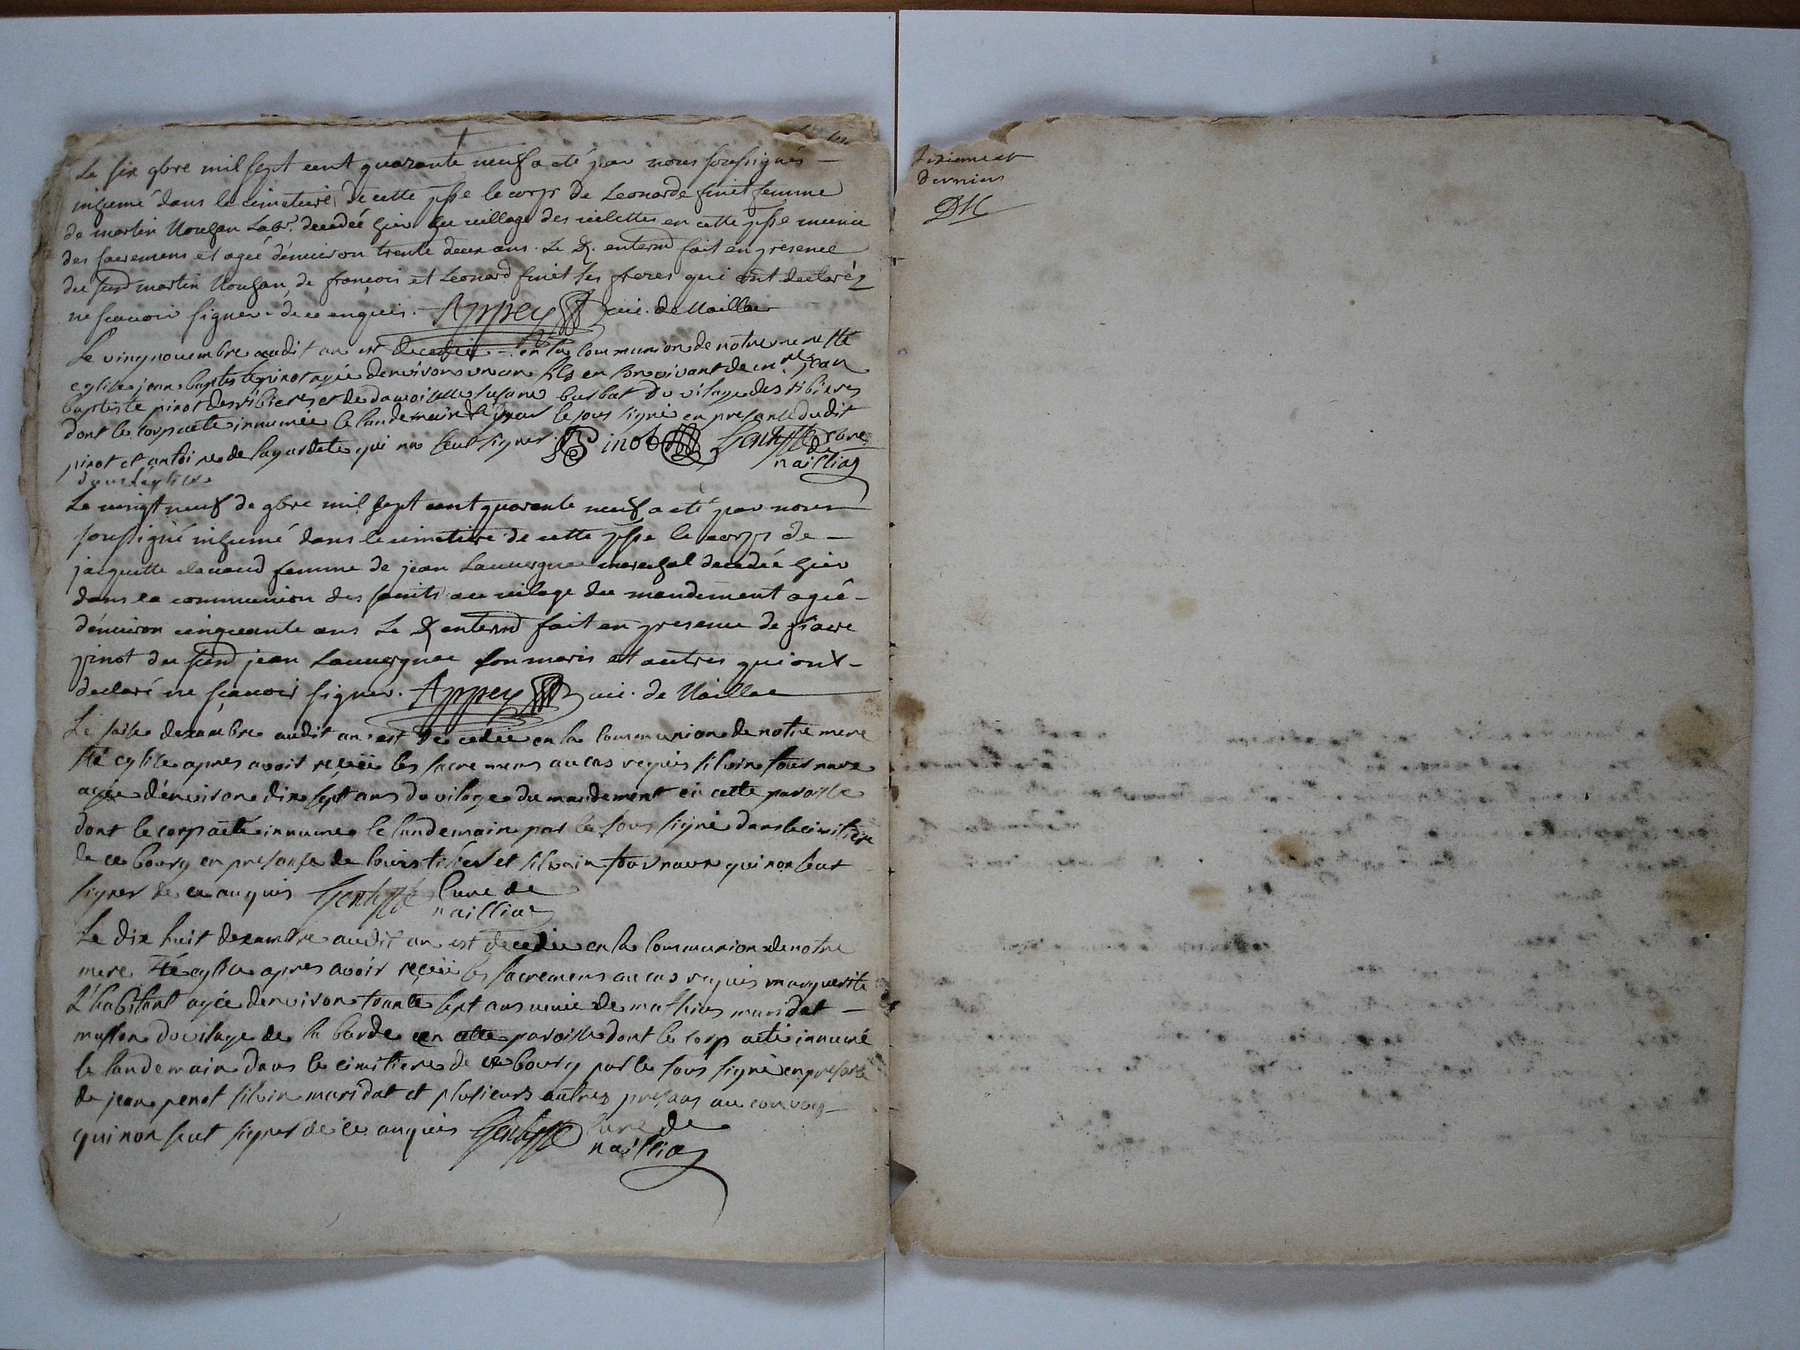 Le six 9bre mil sept cent quarante neuf a eté par nous soussignés
inhumé dans le cimetiere de cette psse le corps de Leonarde finet femme
de martin Nouhan Labr. decedéé hier au village des
des sacremens et agéé d'environ trente deux ans. Le d. enterrmt fait en presence
du susd martin Nouhan, de françois et Leonard finet ses freres qui ont declaréz
ne sçauoir signer de ce enquis. Appey curé de Naillac
Le vingt nouembre audit an est decedée en la Communion de notre mere ste
eglise jean baptiste pinot agée denviron un an fils en son vivant de mr. jean
baptiste pinot des ribieres et de damoiselle susane barbat du vilage des ribieres
dont le corps a eté innumée le landemain par le sous signé en presance dudit
pinot et antoine de lagardete qui na seut signer Pinot Curé
de naillia
dans leglise
Le vingt neuf de 9bre mil sept cent quarante neuf a eté par nous
soussigné inhumé dans le cimetiere de cette psse le corps de
jacquette clauaud femme de jean Lauuergnac marechal decedéé hier
dans la communion des saints au vilage du mandement agéé
d'enuiron cinquante ans Le d enterrmt fait en presence de fiacre
pinot du susd jean Lauuergnac son maris et autres qui ont
declaré ne sçauoir signer. Appey curé de Naillac
Le saise dezambre audit an est decedée en la Communion de notre mere
ste eglise apres avoir reçeü les sacremens au cas requis silvin tournaux
agée d'environ dix sept ans du vilage du mandement en cette paroisse
dont le corp a eté innumé le landemain par le sous signé dans le cimitiere
de ce bourg en presanse de louis et silvain tournaux qui non seut
signer de ce anquis Curé de
naillia
Le dix huit dezambre audit an est decedée en la Communion de notre
mere ste eglise apres avoir reçeü les sacremens au cas requis marguerite
L'habitant agée denviron trante sept ans de mathieu maridat
masson du vilage de la barde en cette paroisse dont le corp a eté innumé
le landemain dans le cimitiere de ce bourg par le sous signé en presanse
de jean penot silvin maridat et plusieurs autres presans au convoy
qui non seut signer de ce anquis Curé de
naillia
et
dernier